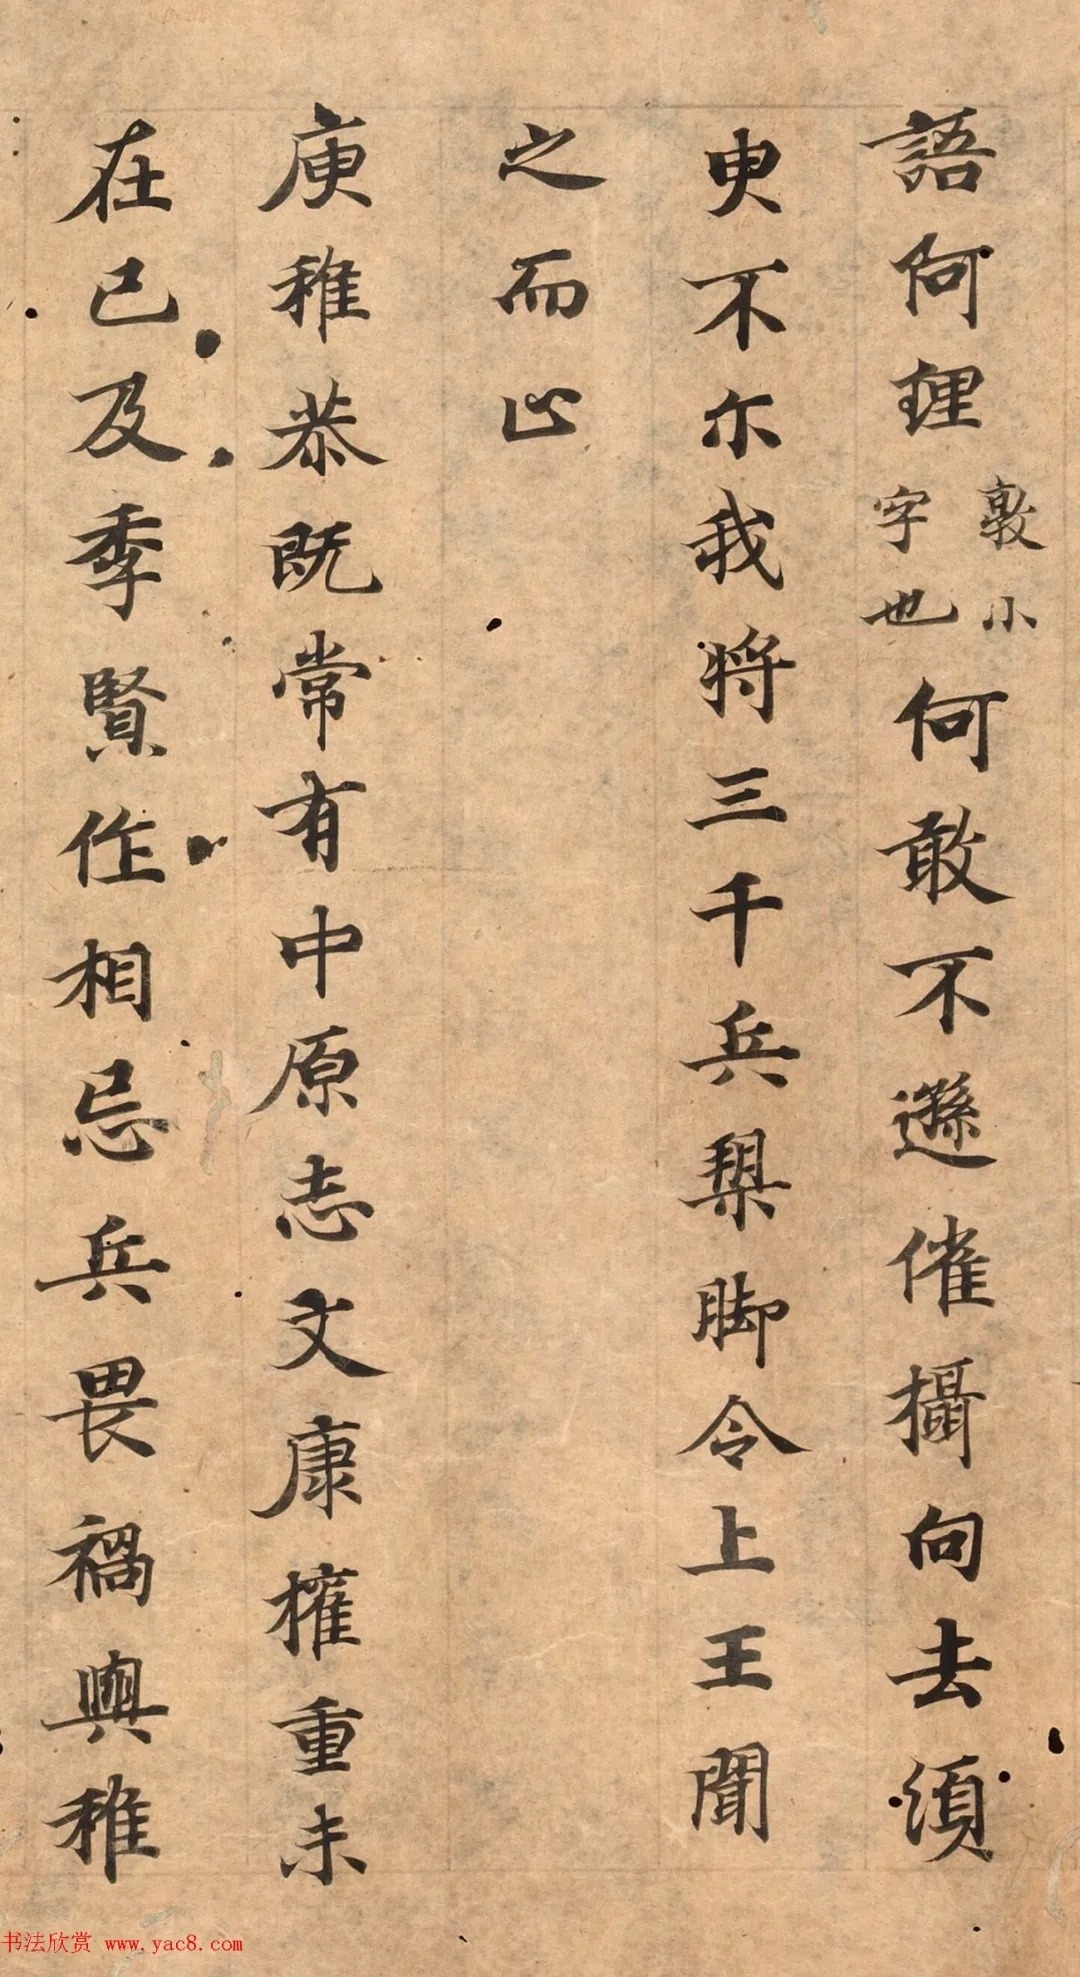 語何理敦小字也何敢不遜催攝向去須
臾不尒我將三千兵槊脚令上王聞
之而止
庾稚恭既常有中原志文康權重未
在己及季賢作相忌兵畏禍與稚
书法欣赏 www.yac8.com